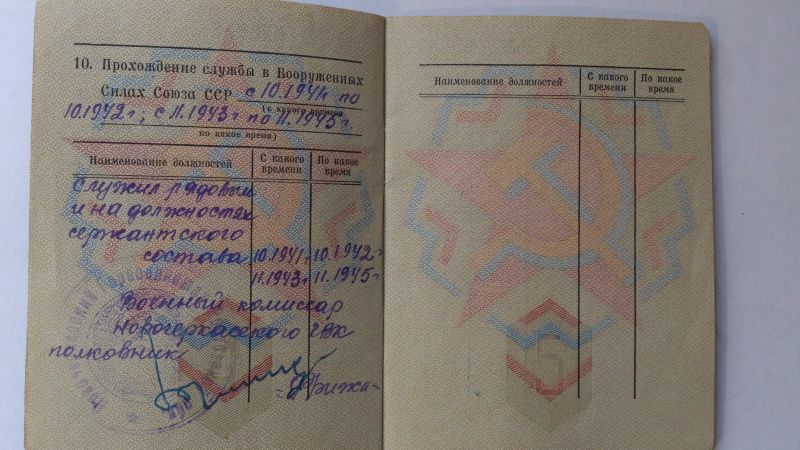 10. Прохождение службы в Вооруженных
Силах Союза ССР с 10.1941г по
(с какого времени
10.1942г, с 11.1943г по 11.1945г.
по какое время)
Наименование должностей С какого времени По какое время
Служил рядовым
и на должностях
сержантского
состава 10.1941г 10.1942г
11.1943г 11.1945г
Военный комиссар
Новочеркасского ГВК
полковник
Наименование должностей С какого времени По какое время